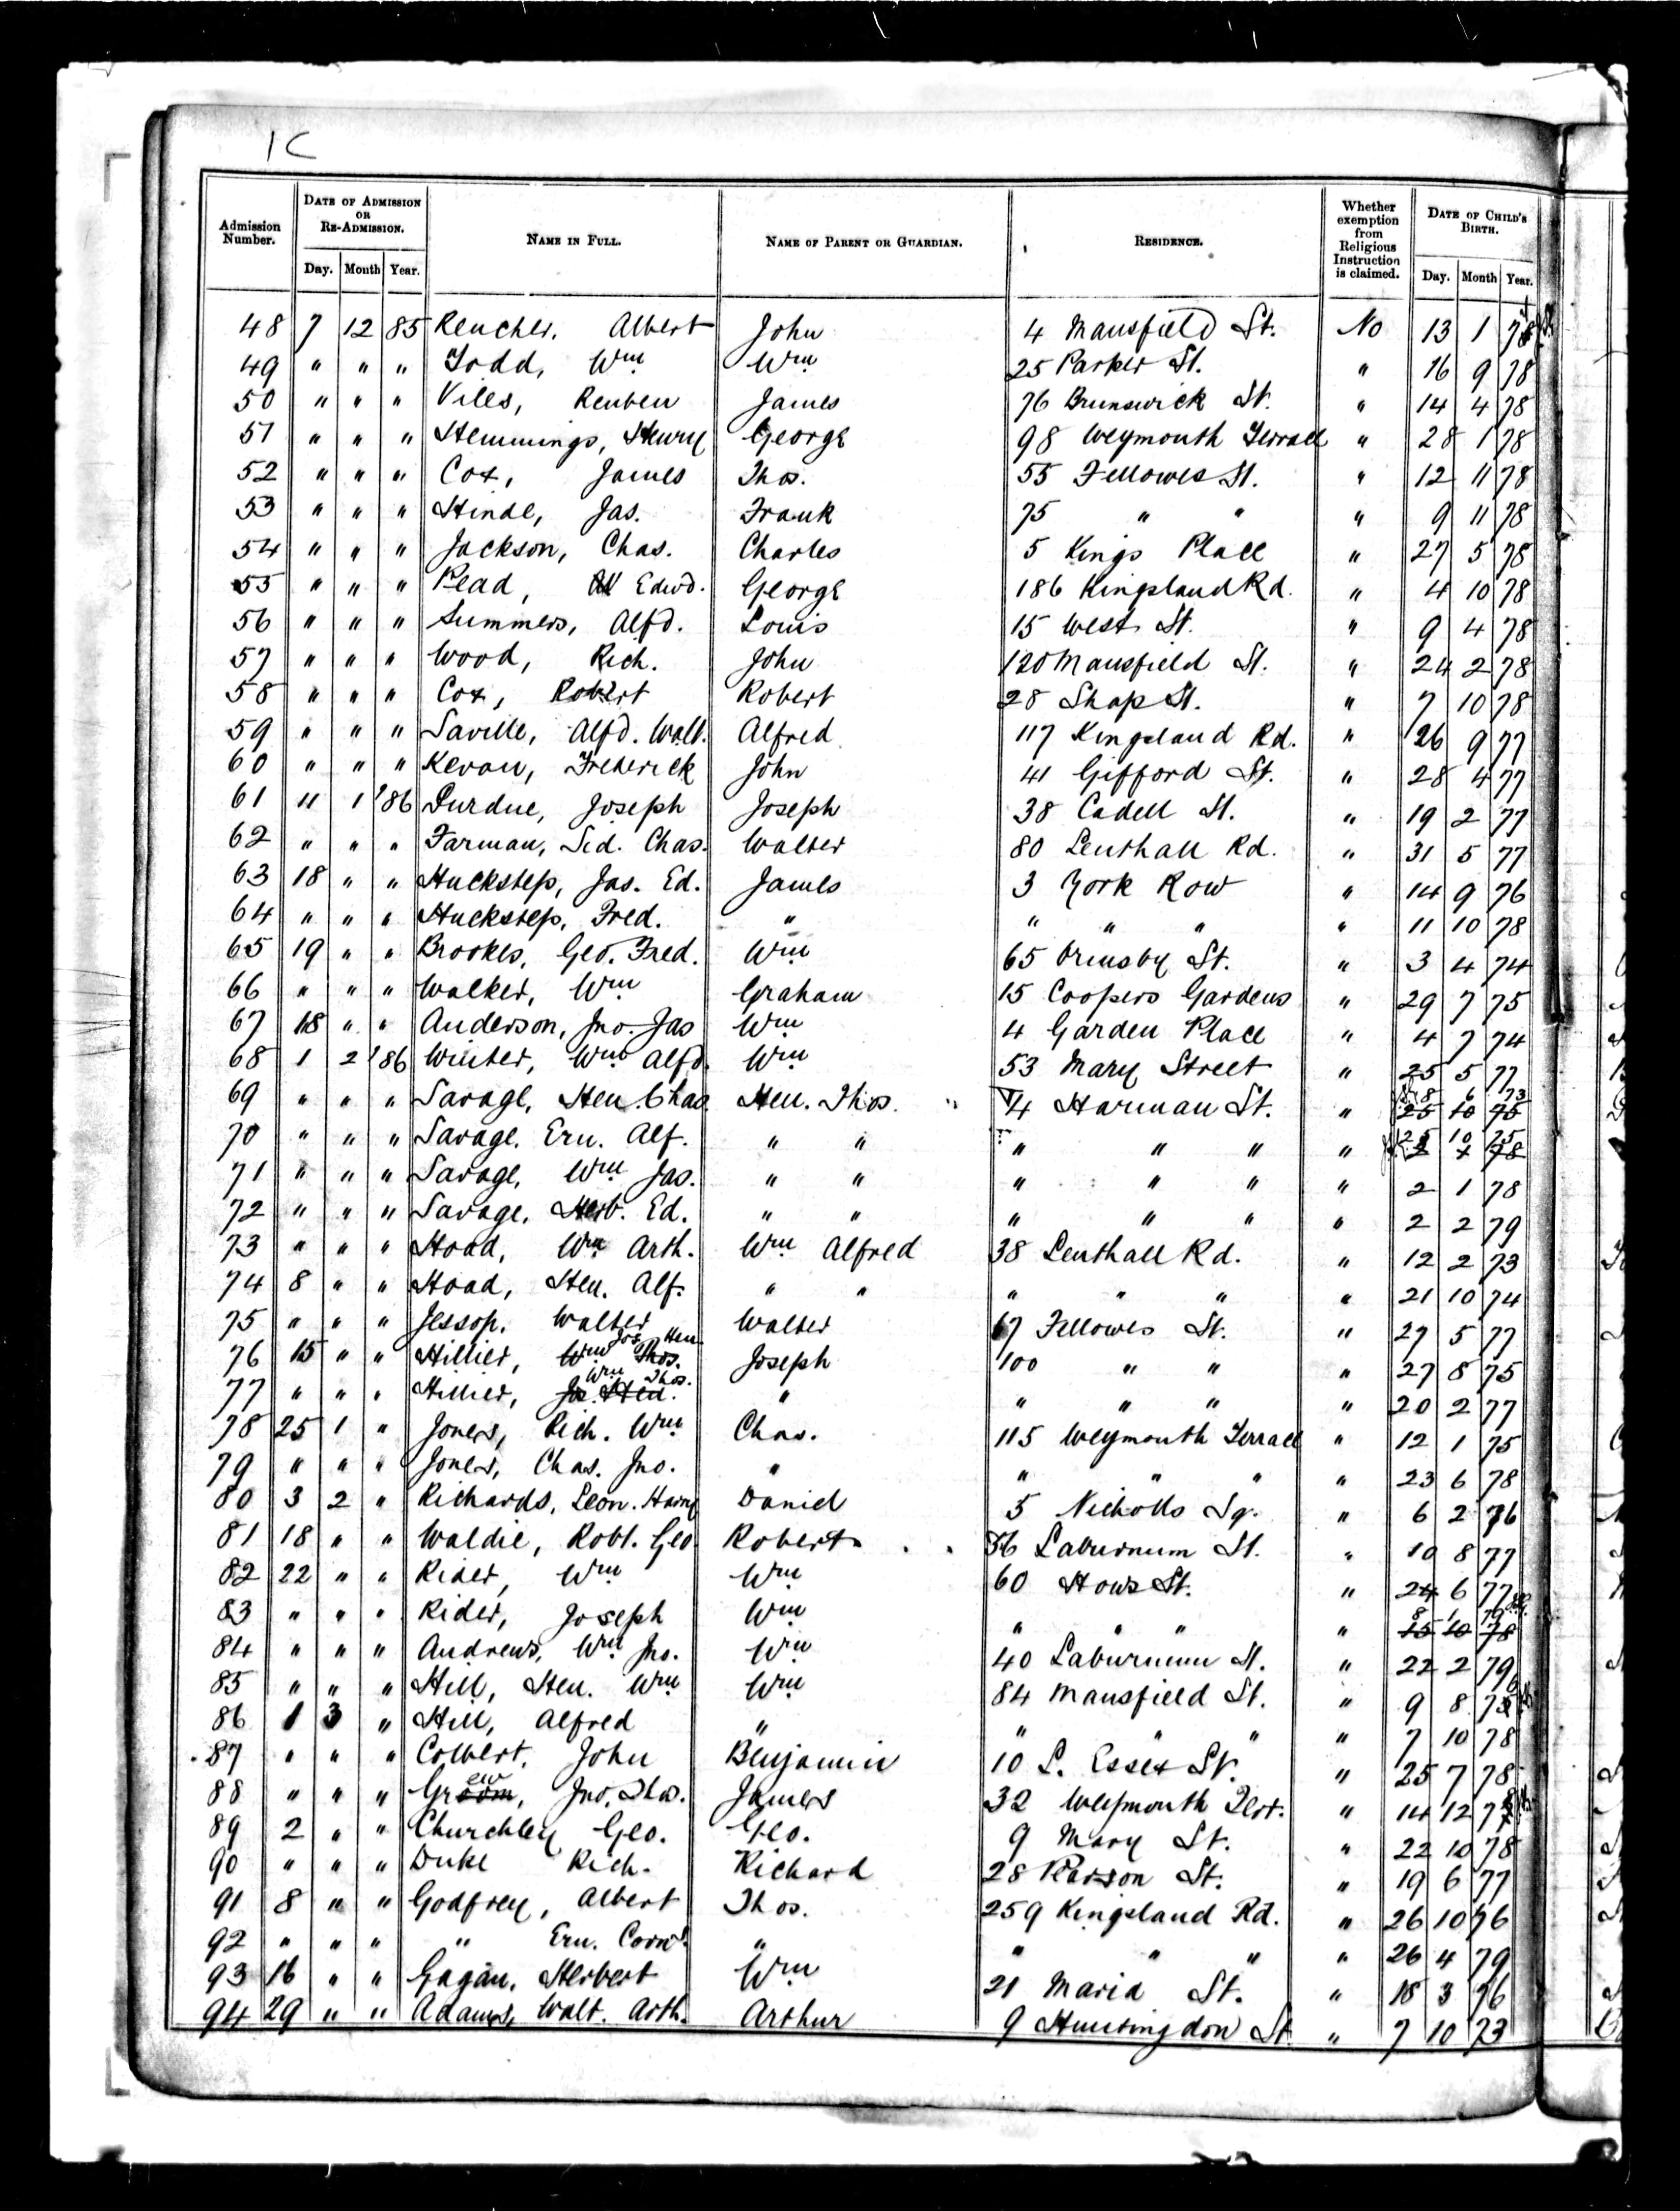 1C
Admission Number. DATE OF ADMISSION OR RE-ADMISSION. Day. Month Year. NAME IN FULL. NAME OF PARENT OR GUARDIAN. RESIDENCE. Whether exemption from Religious Instruction is claimed. DATE OF CHILD'S BIRTH. Day. Month Year.
48 7 12 85 Rencher, Albert John 4 Mansfield St. No 13 1
49 " " " Todd, Wm Wm 25 Parker St. " 16 9 78
50 " " " Viles, Reuben James 76 Brunswick St. " 14 4 78
51 " " " Hemmings, Henry George 98 Weymouth Terrace " 28 1 78
52 " " " Cox, James Thos. 55 Fellowes St. " 12 11 78
53 " " " Hinde, Jas. Frank 75 " " " 9 11 78
54 " " " Jackson, Chas. Charles 5 Kings Place " 27 5 78
55 " " " Pead, Edwd. George 186 Kingsland Rd. " 4 10 78
56 " " " Summers, Alfd. Louis 15 West St. " 9 4 78
57 " " " Wood, Rich. John 120 Mansfield St. " 24 2 78
58 " " " Cox, Robert Robert 28 Shap St. " 7 10 78
59 " " " Saville, Alfd. Walt. Alfred 117 Kingsland Rd. " 26 9 77
60 " " " Kevan, Frederick John 41 Gifford St. " 28 4 77
61 11 1 '86 Purdue, Joseph Joseph 38 Cadell St. " 19 2 77
62 " " " Farman, Sid. Chas. Walter 80 Lenthall Rd. " 31 5 77
63 18 " " Huckstep, Jas. Ed. James 3 York Row " 14 9 76
64 " " " Huckstep, Fred. " " " " " 11 10 78
65 19 " " Brookes, Geo. Fred. Wm 65 Ormsby St. " 3 4 74
66 " " " Walker, Wm Graham 15 Coopers Gardens " 29 7 75
67 18 " " Anderson, Jno. Jas Wm 4 Garden Place " 4 7 74
68 1 2 '86 Winter, Wm Alfd. Wm 53 Mary Street " 25 5 77
69 " " " Savage, Hen. Chas Hen. Thos. " 4 Harman St. " 18 6 73 25 10 75
70 " " " Savage, Ern. Alf. " " " " " " 25 10 75
71 " " " Savage, Wm Jas. " " " " " " 2 1 78
72 " " " Savage, Herb. Ed. " " " " " " 2 2 79
73 " " " Hoad, Wm Arth. Wm Alfred 38 Lenthall Rd. " 12 2 73
74 8 " " Hoad, Hen. Alf. " " " " " " 21 10 74
75 " " " Jessop, Walter Walter 67 Fellowes St. " 27 5 77
76 15 " " Hillier, Wm Thos. Jos. Hen Joseph 100 " " " 27 8 75
77 " " " Hillier, Jos. Hen. Wm Thos. " " " " " 20 2 77
78 25 1 " Joners, Rich. Wm Chas. 115 Weymouth Terrace " 12 1 75
79 " " " Joners, Chas. Jno. " " " " " 23 6 78
80 3 2 " Richards, Leon. Harry Daniel 5 Nicholls Sq. " 6 2 76
81 18 " " Waldie, Robt. Geo Robert 56 Laburnum St. " 10 8 77
82 22 " " Rider, Wm Wm 60 Hows St. " 24 6 77
83 " " " Rider, Joseph Wm " " " " 8 1 79 15 10 78
84 " " " Andrews, Wm Jno. Wm 40 Laburnum St. " 22 2 79
85 " " " Hill, Hen. Wm Wm 84 Mansfield St. " 9 8
86 1 3 " Hill, Alfred " " " " " 7 10 78
87 " " " Colbert, John Benjamin 10 L. Essex St. " 25 7 78
88 " " " Groom, ew Jno. Thos. James 32 Weymouth Terr. " 14 12
89 2 " " Churchley Geo. Geo. 9 Mary St. " 22 10 78
90 " " " Duke Rich. Richard 28 Pearson St. " 19 6 77
91 8 " " Godfrey, Albert Thos. 259 Kingsland Rd. " 26 10 76
92 " " " " Ern. " " " " " 26 4 79
93 16 " " Gagan, Herbert Wm 21 Maria St. " 18 3 76
94 29 " " Adams, Walt. Arth. Arthur 9 Huntingdon St. " 7 10 73